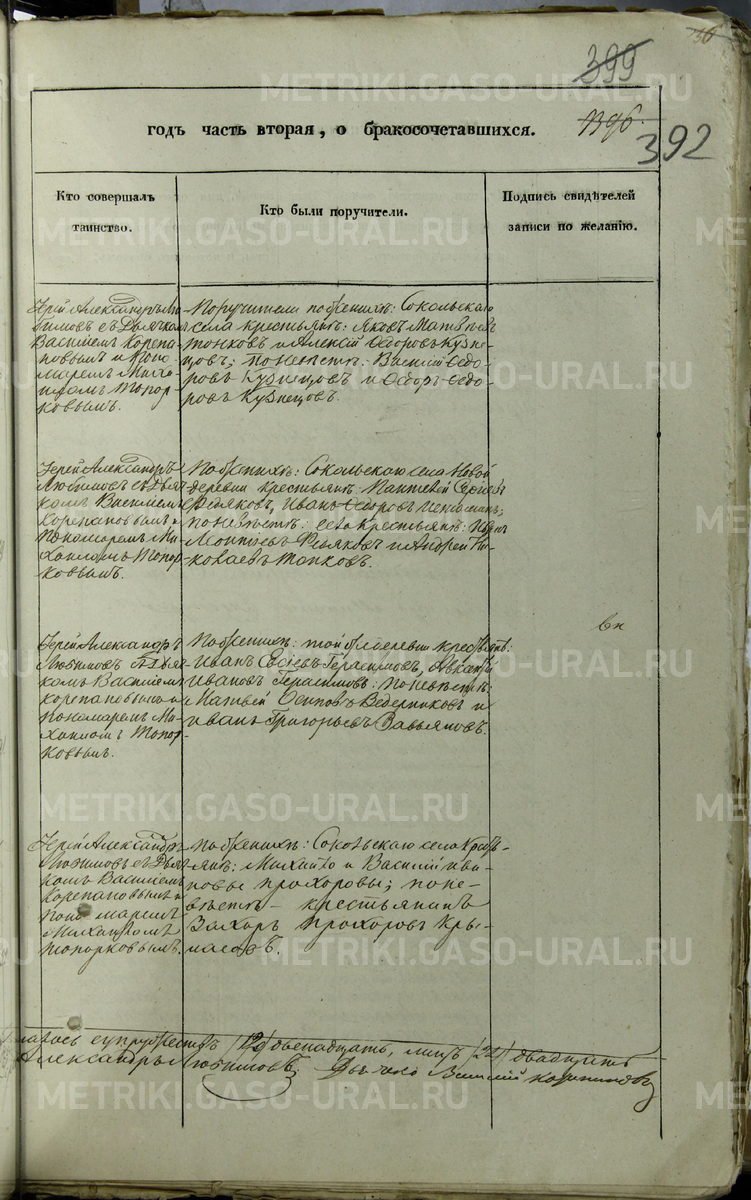 399
396.
392
годъ часть вторая, о бракосочетавшихся.
Кто совершалъ таинство.
Кто были поручители.
Подпись свидѣтелей записи по желанію.
Іерей Александръ Лю-
бимовъ съ Дьячкомъ
Василіемъ Корепа-
новымъ и Поно-
маремъ Миха-
иломъ Топор-
ковымъ.
Поручители по женихѣ: Сокольскаго
села крестьяне: Яковъ Матвѣевъ
и Алексѣй Ѳедоровъ Кузне-
цовъ; по невѣстѣ: Василій Ѳедо-
ровъ Кузнецовъ и Ѳедоръ Ѳедо-
ровъ Кузнецовъ.
Іерей Александръ
Любимовъ съ Дьяч-
комъ Василіемъ
Корепановымъ и
Пономаремъ Ми-
хаиломъ Топор-
ковымъ.
По женихѣ: Сокольскаго села Новой
деревни крестьяне: Пантелей Сергѣевъ
Иванъ Ѳедоровъ
по невѣстѣ: села крестьяне:
и Андрей Ни-
колаевъ
Іерей Александръ
Любимовъ съ Дьяч-
комъ Василіемъ
Корепановымъ и
Пономаремъ Ми-
хаиломъ Топор-
ковымъ.
По женихѣ: той же деревни крестьяне:
Иванъ Герасимовъ,
Ивановъ Герасимовъ: по невѣстѣ:
Матвѣй Осиповъ Ведерниковъ и
Иванъ Григорьевъ Завьяловъ.
Іерей Александръ
Любимовъ съ Дьяч-
комъ Василіемъ
Корепановымъ и
Поно маремъ
Михаиломъ
Топорковымъ.
По женихѣ: Сокольскаго села Кресть-
яне: Михайло и Василій Ива-
новы Прохоровы; по не-
вѣстѣ – крестьянинъ
Захаръ Прохоровъ Кры-
ласовъ.
супружествъ /12/ двенадцать, лицъ /22/ двадцать
Александръ Любимовъ. Дьячекъ Василій Корепановъ
METRIKI.GASO-URAL.RU